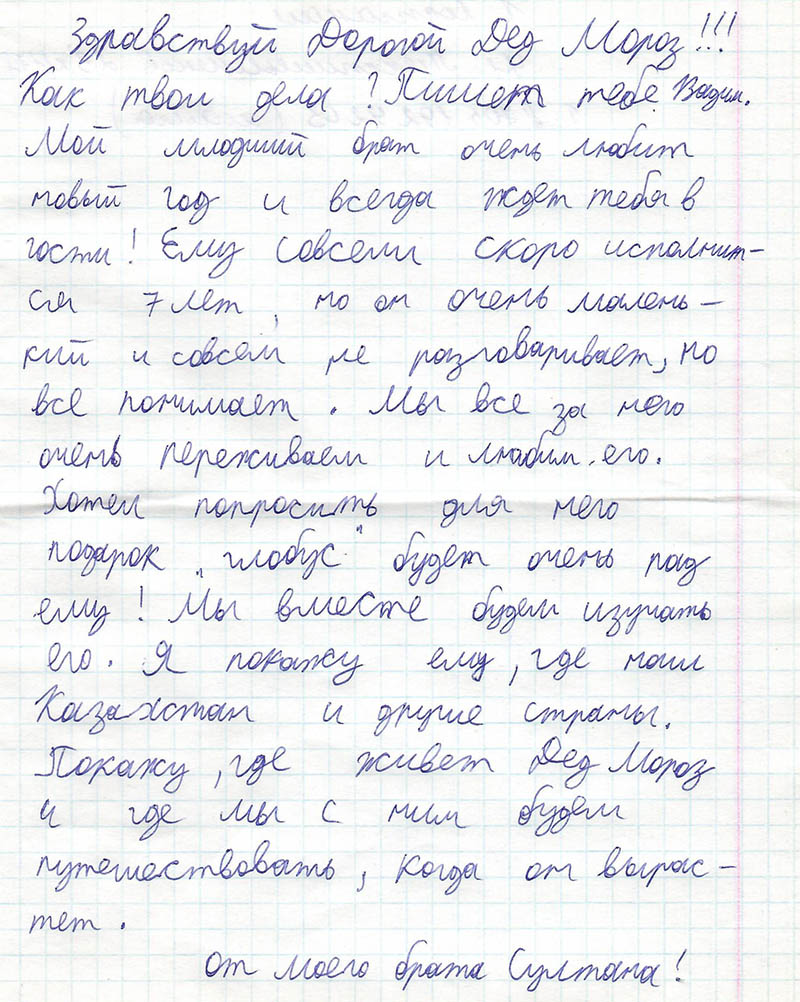 Здравствуй Дорогой Дед Мороз!!!
Как твои дела? Пишет тебе Вадим.
Мой младший брат очень любит
новый год и всегда ждет тебя в
гости! Ему совсем скоро исполнит-
ся 7 лет, но он очень малень-
кий и совсем не разговаривает, но
все понимает. Мы все за него
очень переживаем и любим его.
Хотел попросить для него
подарок "глобус" будет очень рад
ему! Мы вместе будем изучать
его. Я покажу ему, где наш
Казахстан и другие страны.
Покажу, где живет Дед Мороз
и где мы с ним будем
путешествовать, когда он вырас-
тет.
от моего брата Султана!